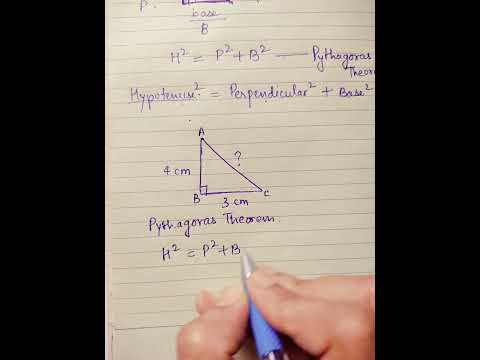 P.
base
B
H² = P² + B² — Pythagoras
Theorem
Hypotenuse² = Perpendicular² + Base²
A
?
4 cm
B
C
3 cm
Pythagoras Theorem
H² = P² + B